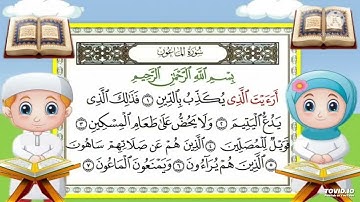 سُورَةُ المَاعُونِ
بِسْمِ اللَّهِ الرَّحْمَٰنِ الرَّحِيمِ
أَرَءَيْتَ الَّذِي يُكَذِّبُ بِالدِّينِ ١ فَذَٰلِكَ الَّذِي
يَدُعُّ الْيَتِيمَ ٢ وَلَا يَحُضُّ عَلَىٰ طَعَامِ الْمِسْكِينِ ٣
فَوَيْلٌ لِّلْمُصَلِّينَ ٤ الَّذِينَ هُمْ عَن صَلَاتِهِمْ سَاهُونَ
٥ الَّذِينَ هُمْ يُرَاءُونَ ٦ وَيَمْنَعُونَ الْمَاعُونَ ٧
TOVID.IO